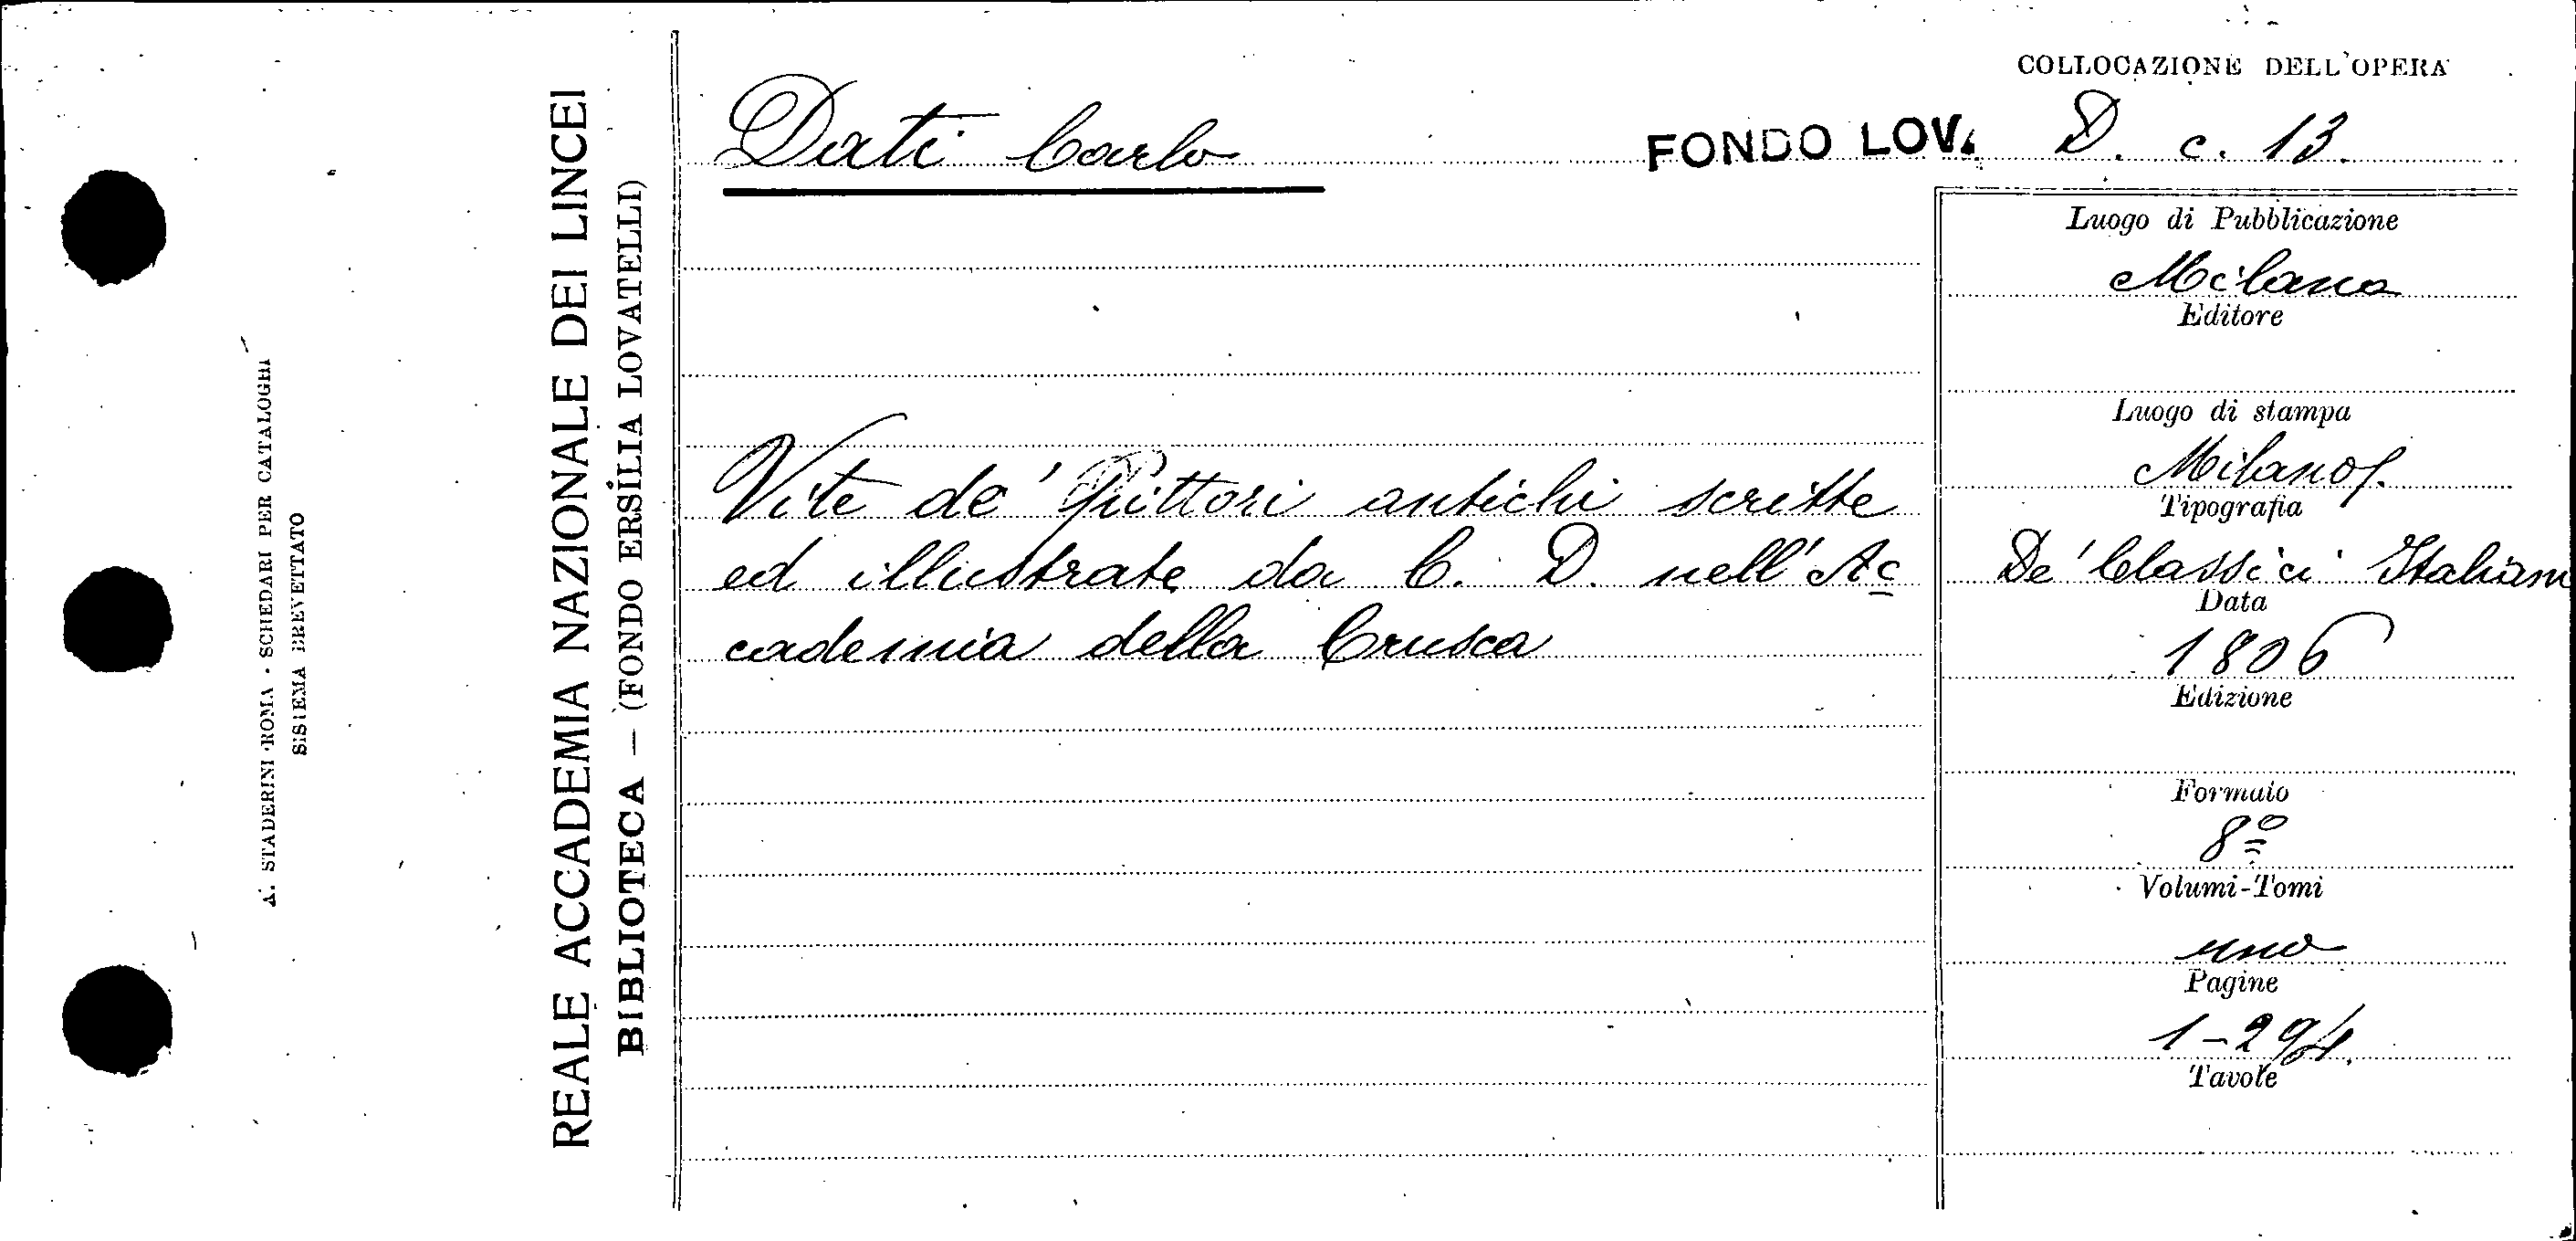 COLLOCAZIONE DELL'OPERA
Dati Carlo
FONDO LOV. D. c. 13.
Vite de' Pittori antichi scritte
ed illustrate da C. D. nell'Ac
cademia della Crusca
Luogo di Pubblicazione
Milano
Editore
Luogo di stampa
Milano
Tipografia
De' Classici Italiani
Data
1806
Edizione
Formato
8º
Volumi-Tomi
uno
Pagine
1-294.
Tavole
REALE ACCADEMIA NAZIONALE DEI LINCEI
BIBLIOTECA — (FONDO ERSILIA LOVATELLI)
A. STADERINI - ROMA - SCHEDARI PER CATALOGHI
SISTEMA BREVETTATO